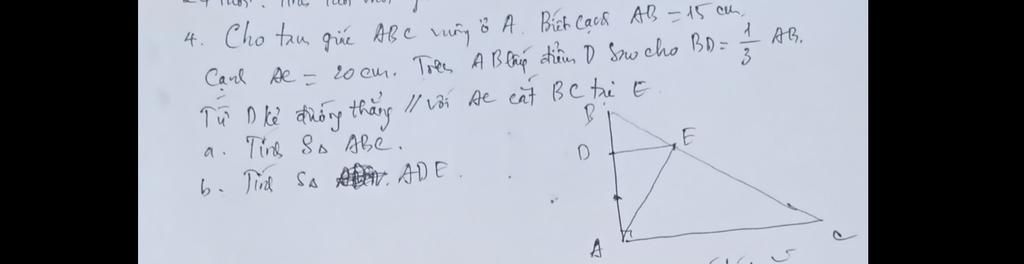 4. Cho tam giác ABC vuông ở A. Biết cạnh AB = 15 cm.
Cạnh AC = 20 cm. Trên AB lấy điểm D sao cho BD = 1/3 AB.
Từ D kẻ đường thẳng // với AC cắt BC tại E
a. Tính S△ ABC.
b. Tính S△ ADE.
B
D
E
A
C